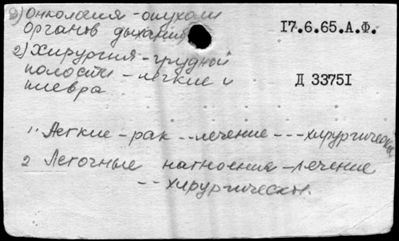 3) Онкология - опухоли
органов дыхания
17.6.65.А.Ф.
2) Хирургия - грудной
полости - легкие и
плевра
Д 33751
1. Легкие - рак -- лечение --- хирургическ
2 Легочные нагноения - лечение
-- хирургическ.